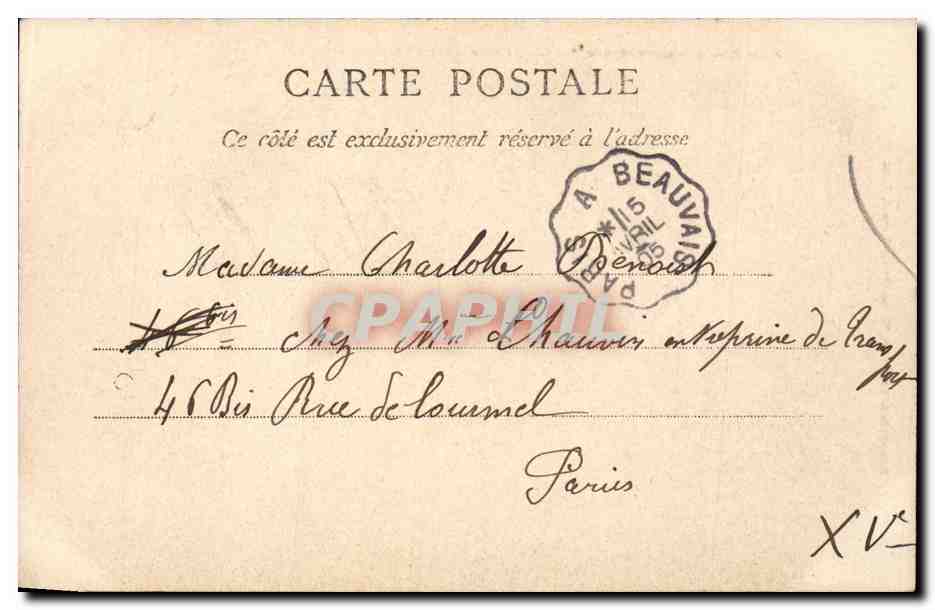 CARTE POSTALE
Ce côté est exclusivement réservé à l'adresse
PARIS A BEAUVAIS
* 15
AVRIL
05
Madame Charlotte Benoist
46 bis chez Mme Chauvin entreprise de Transport
46 Bis Rue de Lourmel
Paris
XVe
CPAPHIL